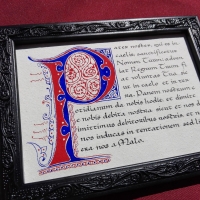 Pater noster, qui es in
caelis: sanctificetur
Nomen Tuum; adveniat
Regnum Tuum; fi
at voluntas Tua, sic
ut in caelo et in ter
ra. Panem nostrum
cotidianum da nobis hodie et dimitte
nobis debita nostra sicut et nos
dimittimus debitoribus nostris et ne
nos inducas in tentationem sed libe
ra nos a Malo.